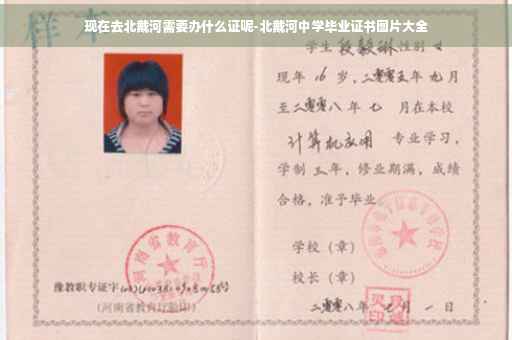 现在去北戴河需要办什么证呢-北戴河中学毕业证书图片大全
样本
学生段毅琳性别女
现年16岁,二零零五年九月
至二零零八年七月在本校
计算机应用 专业学习,
学制三年,修业期满,成绩
合格,准予毕业
学校(章)
校长(章)
二零零八年七月一日
河南省教育厅
豫教职专证字
(河南省教育厅验印)